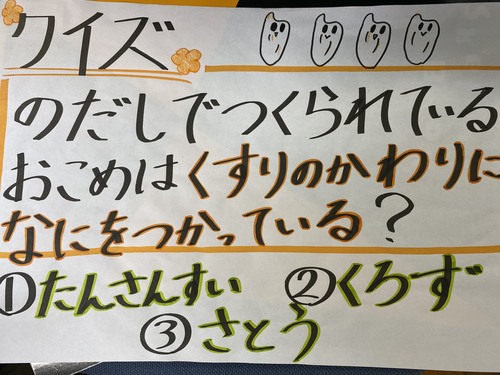 クイズ
のだしでつくられている
おこめはくすりのかわりに
なにをつかっている?
①たんさんすい ②くろず
③さとう